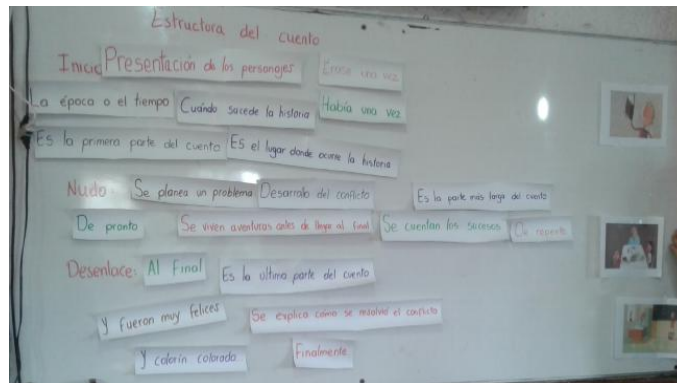 Estructura del cuento
Inicio Presentación de los personajes Érase una vez
La época o el tiempo Cuándo sucede la historia Había una vez
Es la primera parte del cuento Es el lugar donde ocurre la historia
Nudo: Se planea un problema Desarrollo del conflicto Es la parte más larga del cuento
De pronto Se viven aventuras antes de llegar al final Se cuentan los sucesos De repente
Desenlace: Al Final Es la última parte del cuento
y fueron muy felices Se explica cómo se resolvió el conflicto
y colorín colorado Finalmente